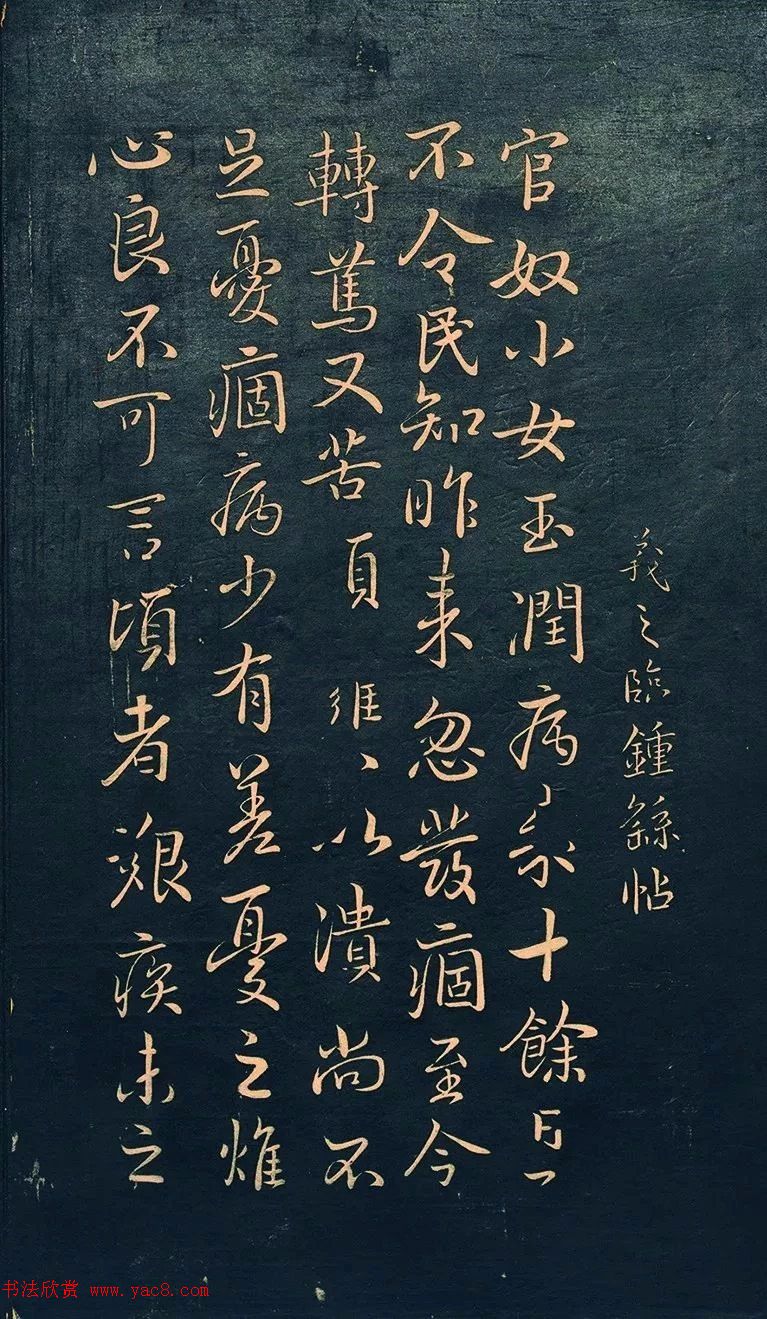 羲之臨鍾繇帖
官奴小女玉潤病來十餘日一
不令民知昨來忽發痼至今
轉篤又苦頁以潰尚不
足憂痼病少有差憂之燋
心良不可言頃者艱疾未之
书法欣赏 www.yac8.com